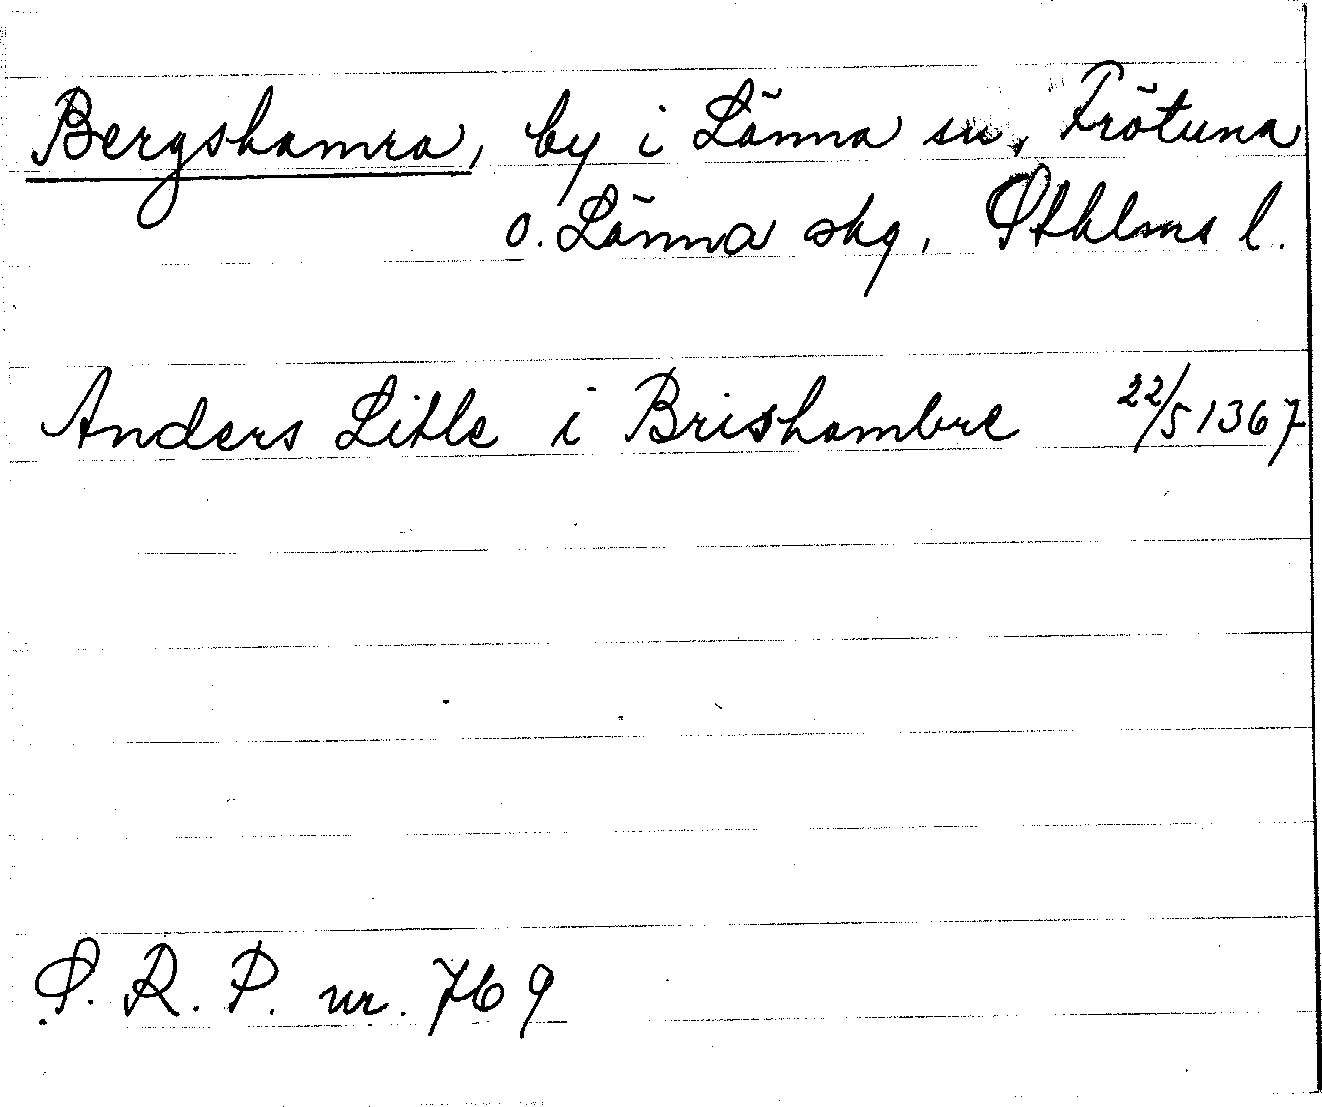 Bergshamra, by i Länna sn, Frötuna
o. Länna skg, Sthlms l.
Anders Litle i Brishambre 22/5 1367
S. R. P. nr. 769